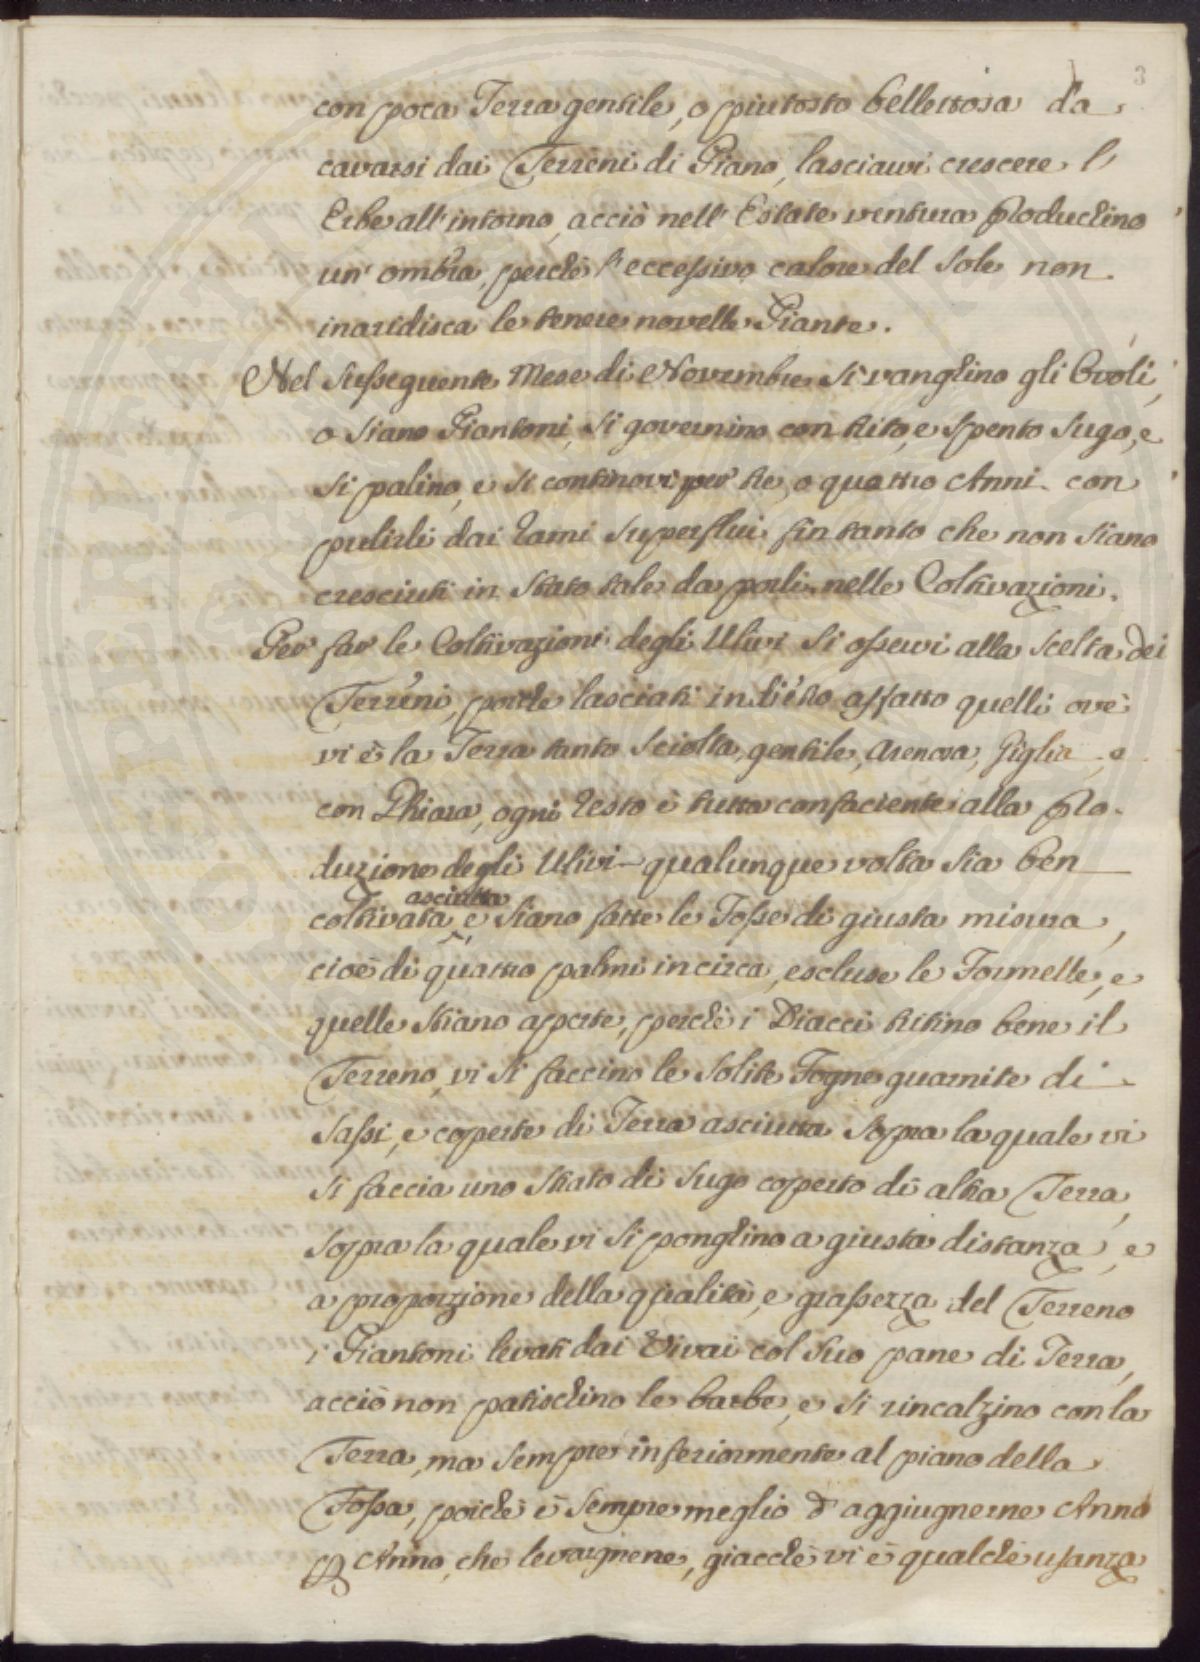 3
con poca Terra gentile, o piutosto bellettosa da
cavarsi dai Terreni di Piano, lasciauvi crescere l'
Erbe all'intorno, acciò nell'Estate ventura produchino
un'ombra, perchè l'eccessivo calore del Sole non
inaridisca le tenere novelle Piante.
Nel susseguente Mese di Novembre si vanghino gli Ovoli,
o siano Piantoni, si governino con trito, e spento sugo, e
si palino, e si continovi per tre, o quattro Anni con
pulirli dai Rami superflui fin tanto che non siano
cresciuti in stato tale da porli nelle Coltivazioni.
Per far le Coltivazioni degli Ulivi si osservi alla scelta dei
Terreni, poichè lasciati indietro affatto quelli ove
vi è la Terra tanto sciolta, gentile, Arenosa, Giglia, e
con Ghiara, ogni resto è tutta confaciente alla pro-
duzione degli Ulivi qualunque volta sia ben
asciutta
coltivata, e siano fatte le Fosse di giusta misura,
cioè di quattro palmi incirca, escluse le Formelle, e
quelle stiano aperte, perchè i Diacci tritino bene il
Terreno, vi si faccino le solite Fogne guarnite di
Sassi, e coperte di Terra asciutta sopra la quale vi
si faccia uno strato di sugo coperto di altra Terra,
sopra la quale vi si ponghino a giusta distanza, e
a proporzione della qualità, e grassezza del Terreno
i Piantoni levati dai Vivai col suo pane di Terra,
acciò non patischino le barbe, e si rincalzino con la
Terra, ma sempre inferiormente al piano della
Fossa, poichè è sempre meglio d'aggiugnerne Anno
per Anno, che levargnene, giacchè vi è qualche usanza